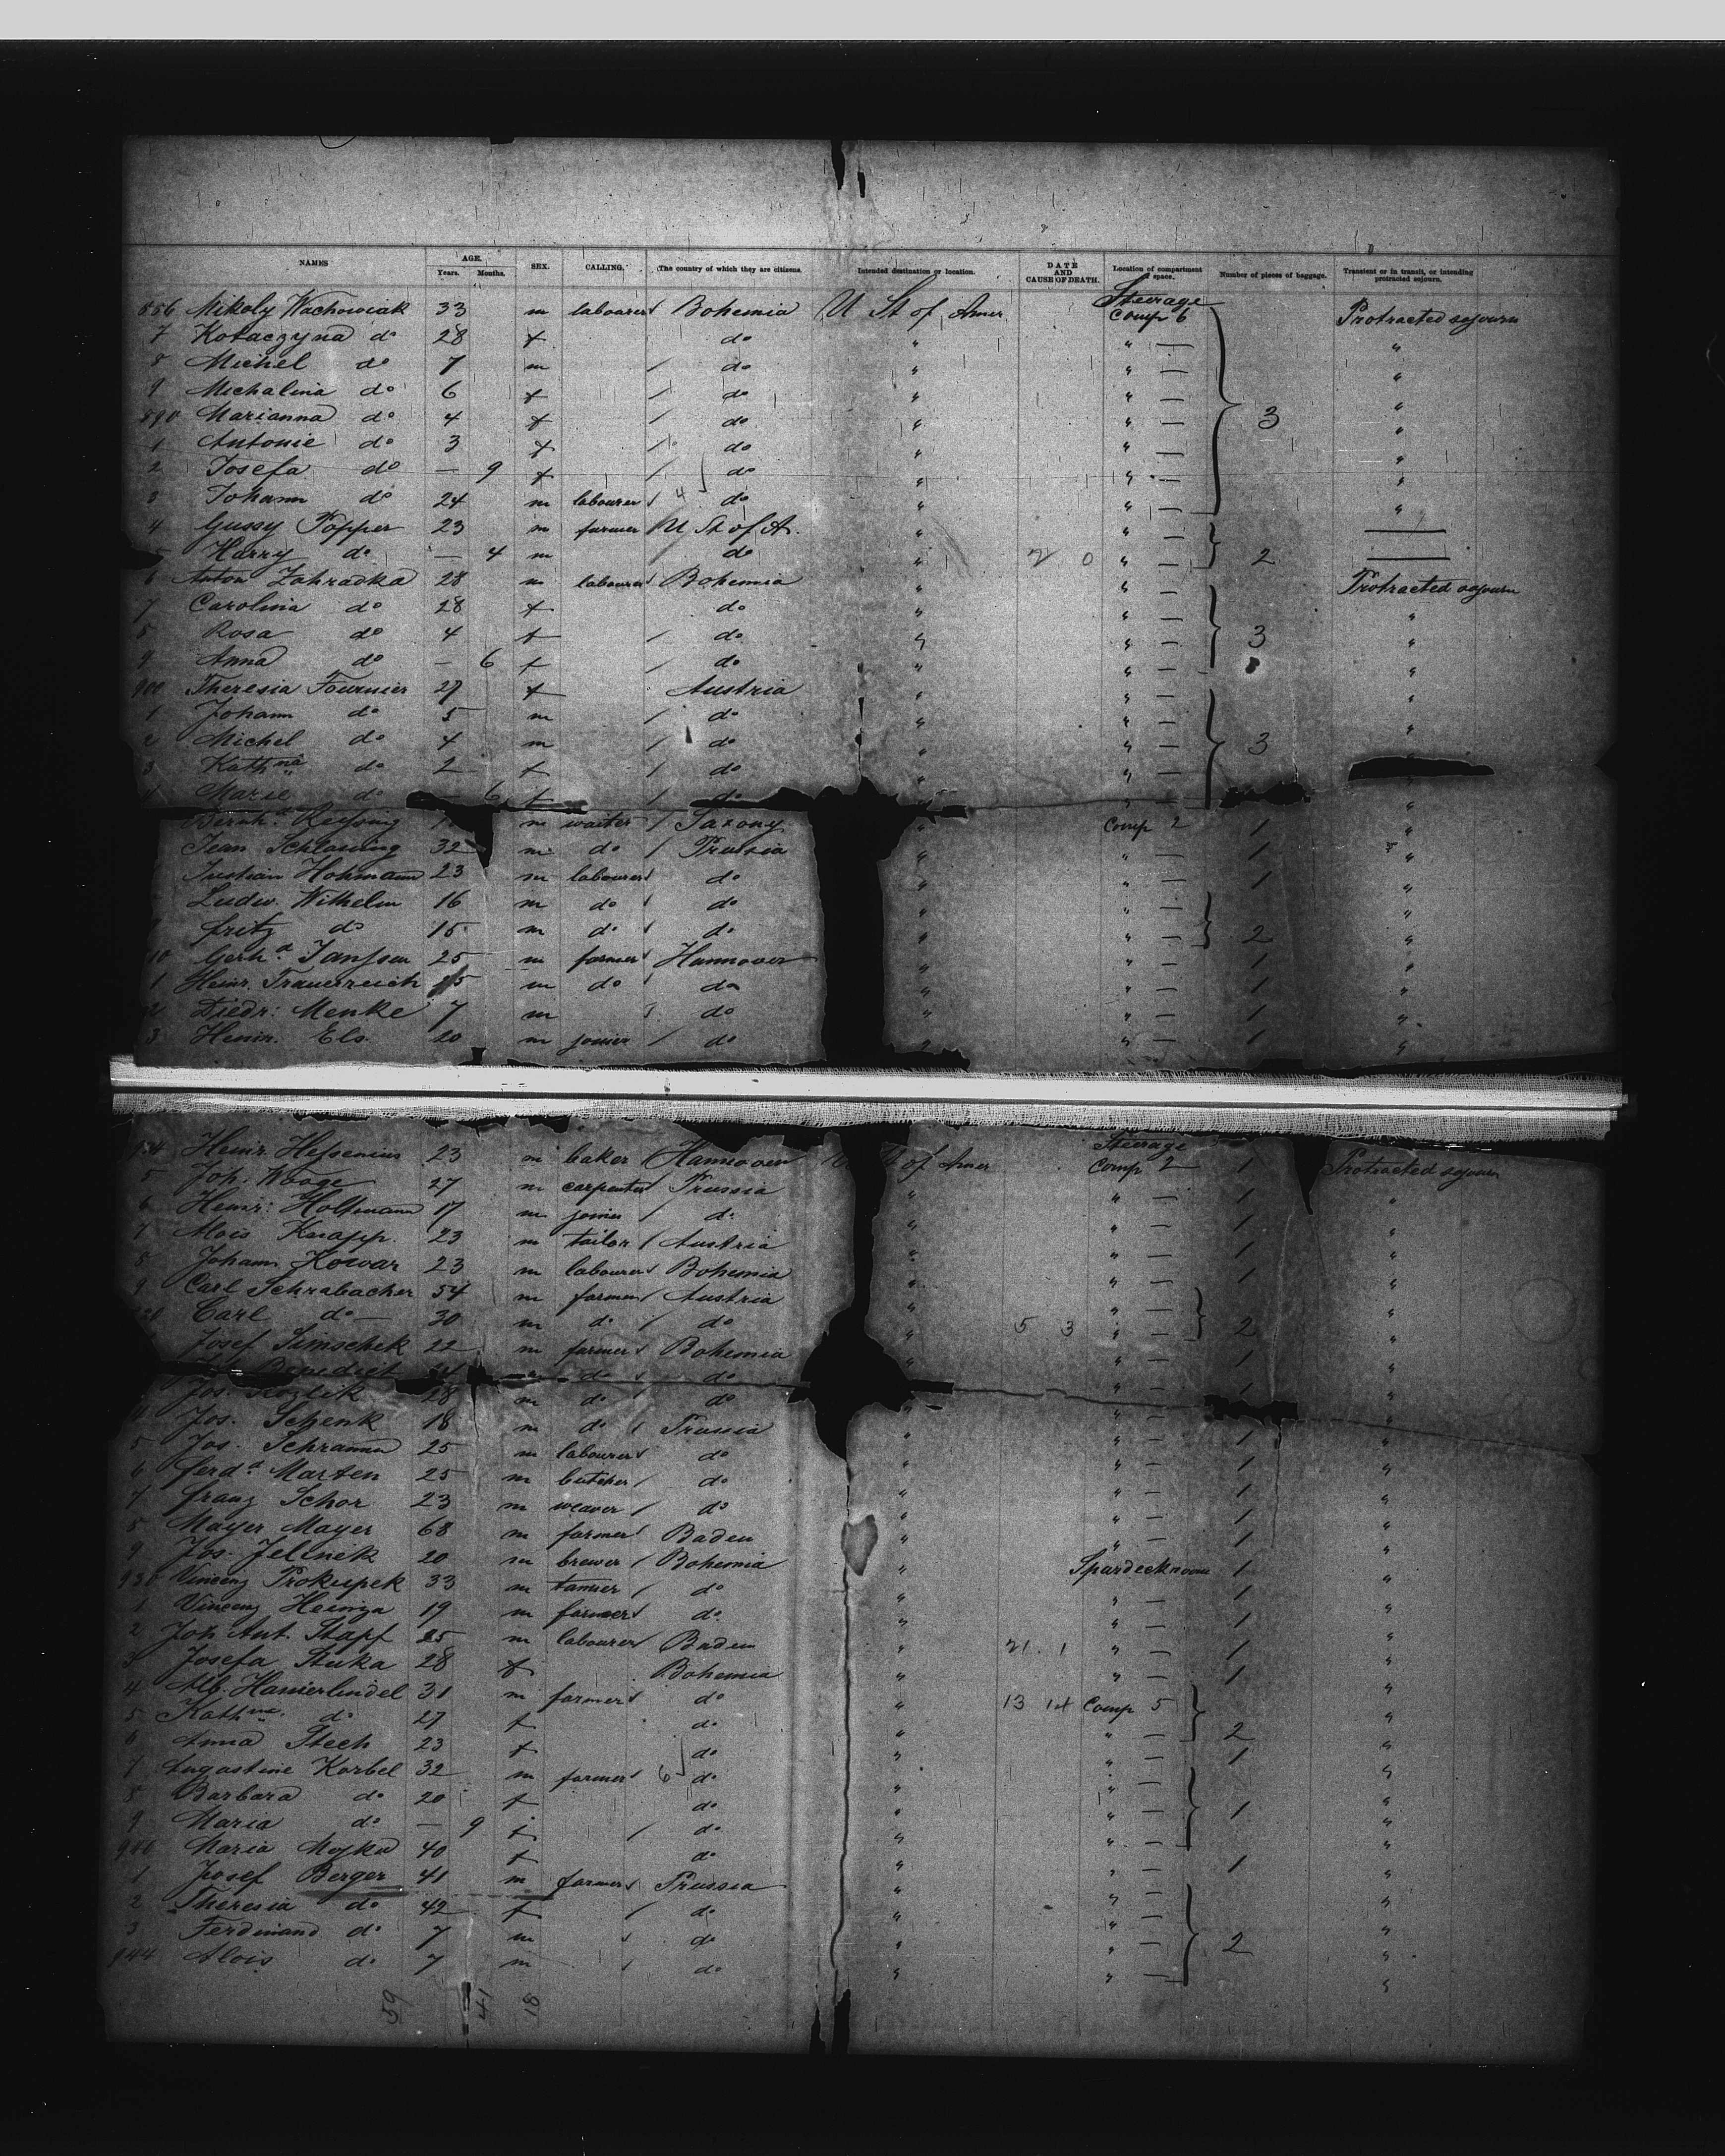 NAMES AGE. Years. Months. SEX. CALLING. The country of which they are citizens. Intended destination or location. DATE AND CAUSE OF DEATH. Location of compartment of space. Number of pieces of baggage. Transient or in transit, or intending protracted sojourn.
Steerage
886 Mikoly Wachowiak 33 m labourer Bohemia U St of Amer Comp 6 Protracted sojourn
7 do 28 f do " " — "
8 Michel do 7 m / do " " — "
9 Michalina do 6 f / do " " — "
890 Marianna do 4 f / do " " — 3 "
1 Antonie do 3 f / do " " — "
2 Josefa do — 9 f / do " " — "
3 Johann do 24 m labourer 4 do " " — "
4 Gussy Popper 23 m farmer U St of A. " " — ——
5 Harry do — 4 m / do " 2 0 " — 2 ——
6 Anton Zahradka 28 m labourer Bohemia " " — Protracted sojourn
7 Carolina do 28 f do " " — "
8 Rosa do 4 f / do " " — 3 "
9 Anna do — 6 f / do " " — "
900 Theresia Fournier 27 f Austria " " — "
1 Johann do 5 m / do " " — "
2 Michel do 4 m / do " " — 3 "
3 Kathna do 2 f / do " " —
4 Marie do — 6 f / do " —  "
m waiter / Saxony " Comp 2 1 "
Jean 32 m do / Prussia " " — 1 "
Hohmann 23 m labourer do " " — 1 "
Ludw. Wilhelm 16 m do do " " — "
Fritz do 15 m do do " " — 2 "
10 Gerhd. Janssen 25 m farmer Hannover " " — 1 "
1 Heinr. Trauerreich m do do " " — 1 "
2 Diedr: Menke 7 m do " " — 1 "
3 Heinr. Els. 20 m joiner / do " " — 1 "
Steerage
914 Heinr. 23 m baker / Hannover U St of Amer Comp 2 1 Protracted sojourn
5 Joh. Wooge 27 m carpenter Prussia " " — 1 "
6 Heinr: 17 m joiner / do " " — 1 "
7 Alois Knapp. 23 m tailor / Austria " " — 1 "
8 Johann Kowar 23 m labourer Bohemia " " — 1 "
9 Carl Schrabacher 54 m farmer / Austria " " — "
920 Carl do — 30 m do / do " 5 3 " — 2 "
Josef Simschek 22 m farmer Bohemia " " — 1 "
Benedict m do do " — 1 "
Jos. Kozlik 18 m do / do " " — "
4 Jos. Schenk 18 m do Prussia " " — 1 "
5 Jos. Schramm 25 m labourer do " " — 1 "
6 Ferdd. Marten 25 m butcher / do " " — 1 "
7 Franz Schor 23 m weaver / do " " — 1 "
8 Mayer Mayer 68 m farmer Baden " " — 1 "
9 Jos. Jellnek 20 m brewer / Bohemia " Spardeckroom 1 "
930 Vincenz Prokupek 33 m tanner / do " " — 1 "
1 Vincenz 19 m farmer do " " — 1 "
2 Joh Ant. Stapf 25 m labourer / Baden " 21 1 " — 1 "
3 Josefa Stuka 28 f Bohemia " " — 1 "
4 Alb. Hamerlindel 31 m farmer do " 13 14 Comp 5 "
5 Kathna. do 27 f do " " — 2 "
6 Anna Stech 23 f do " " — 1 "
7 Augustine Korbel 32 m farmer 6 do " " — "
8 Barbara do 20 f do " " — 1 "
9 Maria do — 9 f / do " " — "
940 Maria 40 f do " " — 1 "
1 Josef Berger 41 m farmer Prussia " " — "
2 Theresia do 42 f / do " " — "
3 Ferdinand do 7 m do " " — 2 "
944 Alois do 7 m do " " — "
59 41 18